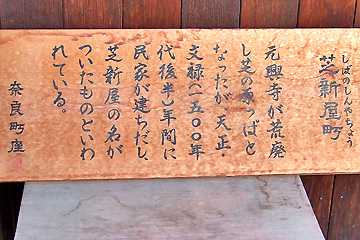 芝新屋町
しばのしんやちょう
元興寺が荒廃
し芝の原っぱと
なったが、天正・
文禄(一五〇〇年
代後半)年間に
民家が建ちだし、
芝新屋の名が
ついたものといわ
れている。
奈良町座